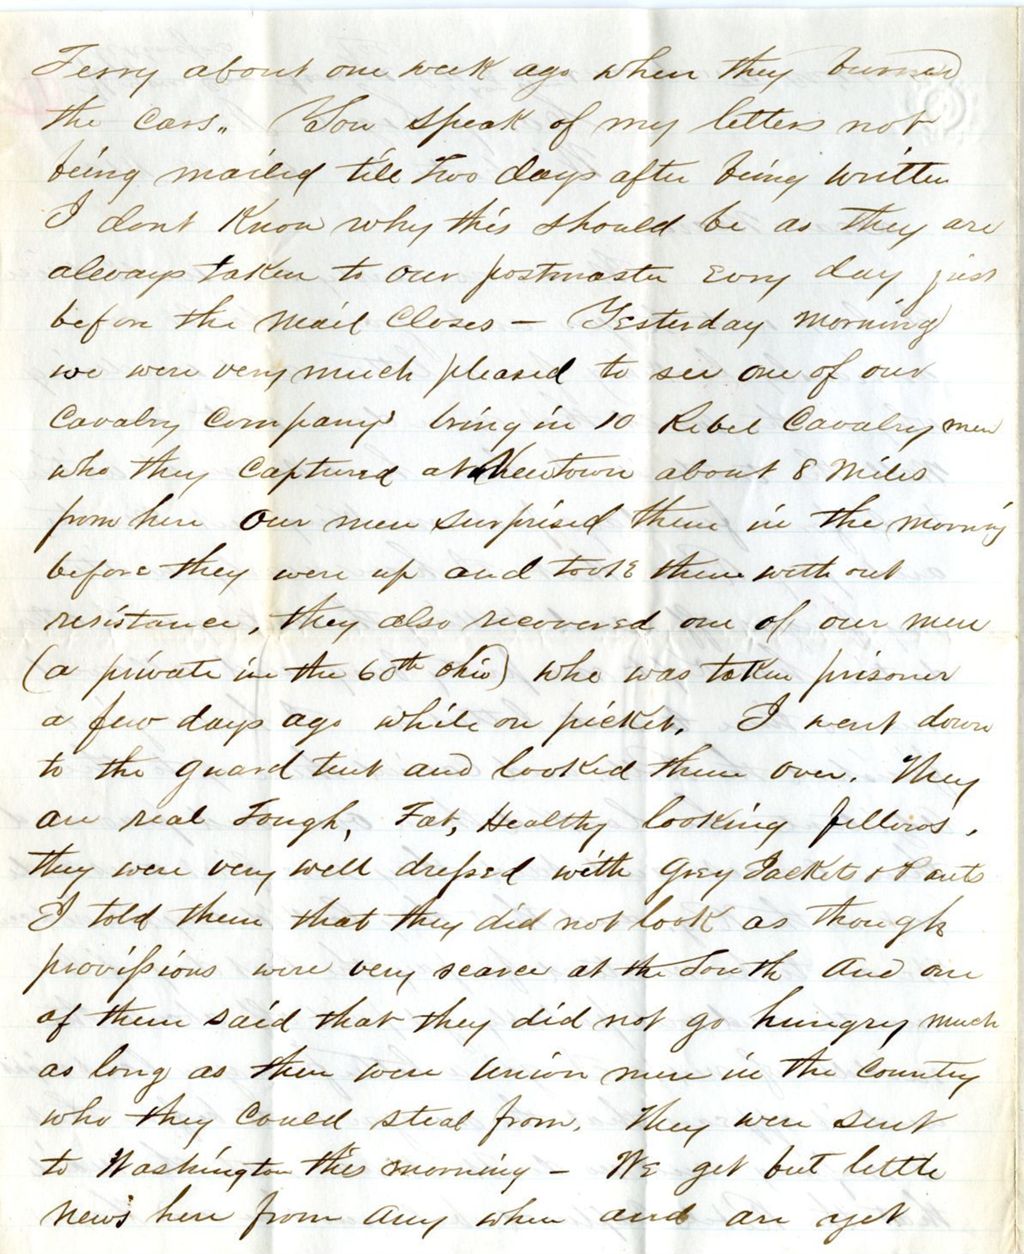 Ferry about one week ago when they burned
the cars,, You speak of my letters not
being mailed till two days after being written
I dont Know why this should be as they are
always taken to our postmaster evry day just
before the Mail Closes – Yesterday Morning
we were very much pleased to see one of our
Cavalry Company's bring in 10 Rebel Cavalry men
who they Captured at Newtown about 8 Miles
from here Our men surprised them in the morning
before they were up and took them without
resistance, they also recovered one of our men
(a private in the 60th Ohio) who was taken prisoner
a few days ago while on picket. I went down
to the guard tent and looked them over. They
are real Tough, Fat, Healthy looking fellows,
they were very well dressed with Grey Jackets & Pants
I told them that they did not look as though
provissions were very scarce at the South And one
of them said that they did not go hungry much
as long as there were Union men in the Country
who they Could steal from. They were sent
to Washington this morning – We get but little
News here from any where and are yet